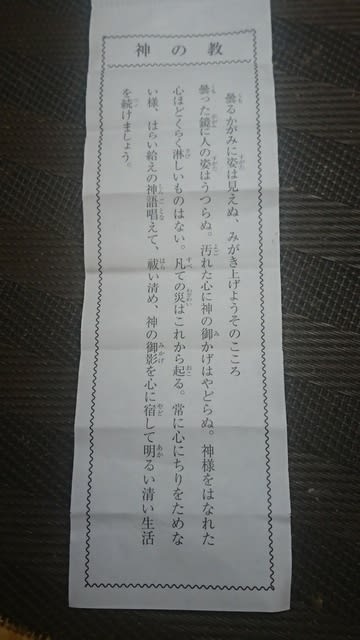 神の教
曇るかがみに姿は見えぬ、みがき上げようそのこころ
曇った鏡に人の姿はうつらぬ。汚れた心に神の御かげはやどらぬ。神様をはなれた
心ほどくらく淋しいものはない。凡ての災はこれから起る。常に心にちりをためな
い様、はらい給えの神語唱えて、祓い清め、神の御影を心に宿して明るい清い生活
を続けましょう。